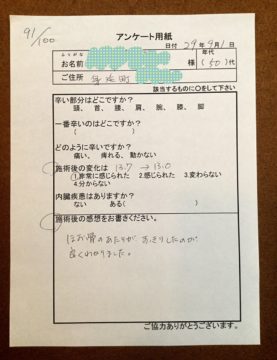 91/100
アンケート用紙
日付 29年9月1日
ふりがな
お名前
様
年代
(50)代
ご住所
身延町
該当するものに〇をして下さい
辛い部分はどこですか？
頭、首、腰、肩、腕、膝、脚
一番辛いのは(　　　)
どのように辛いですか？
痛い、痺れる、動かない
施術後の変化は 13.7 → 13.0
1.非常に感じられた 2.感じられた 3.変わらない
4.分からない
内臓疾患はありますか？
ない　ある(　　　)
施術後の感想をお書きください。
ほお骨のあたりが すっきりしたのが
良くわかりました。
ご協力ありがとうございます。